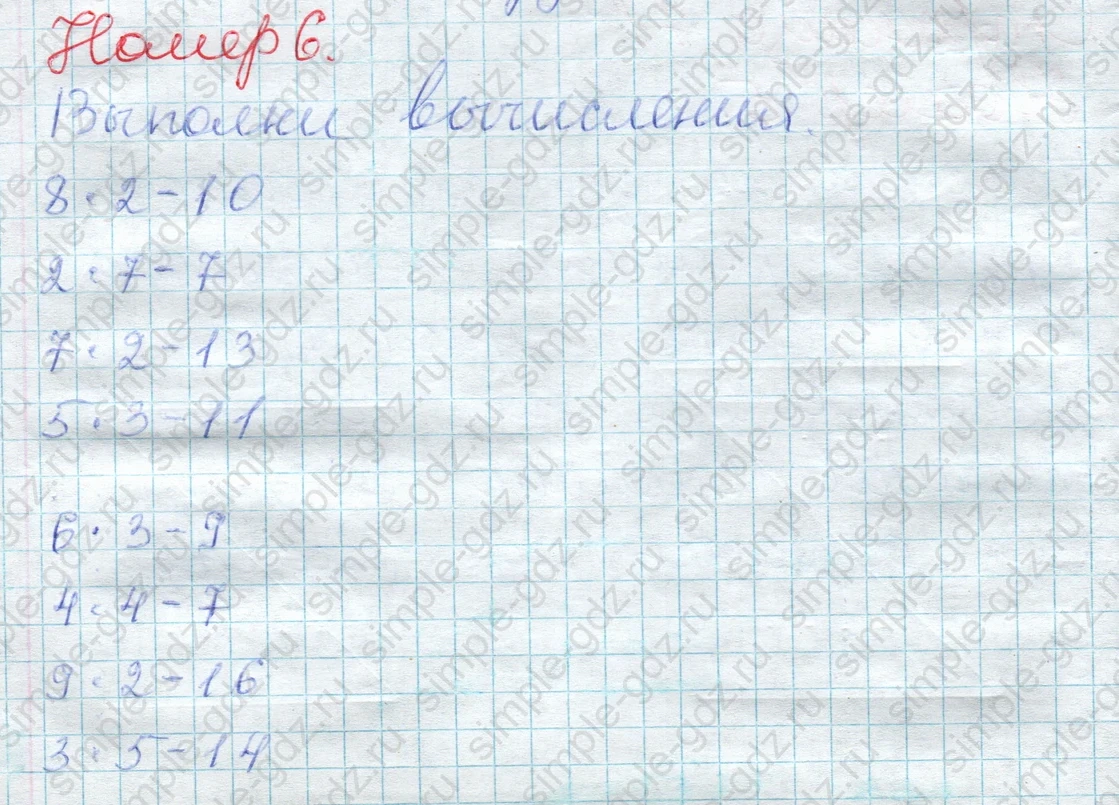 Номер 6.
Выполни вычисления.
8·2-10
2·7-7
7·2-13
5·3-11
6·3-9
4·4-7
9·2-16
3·5-14